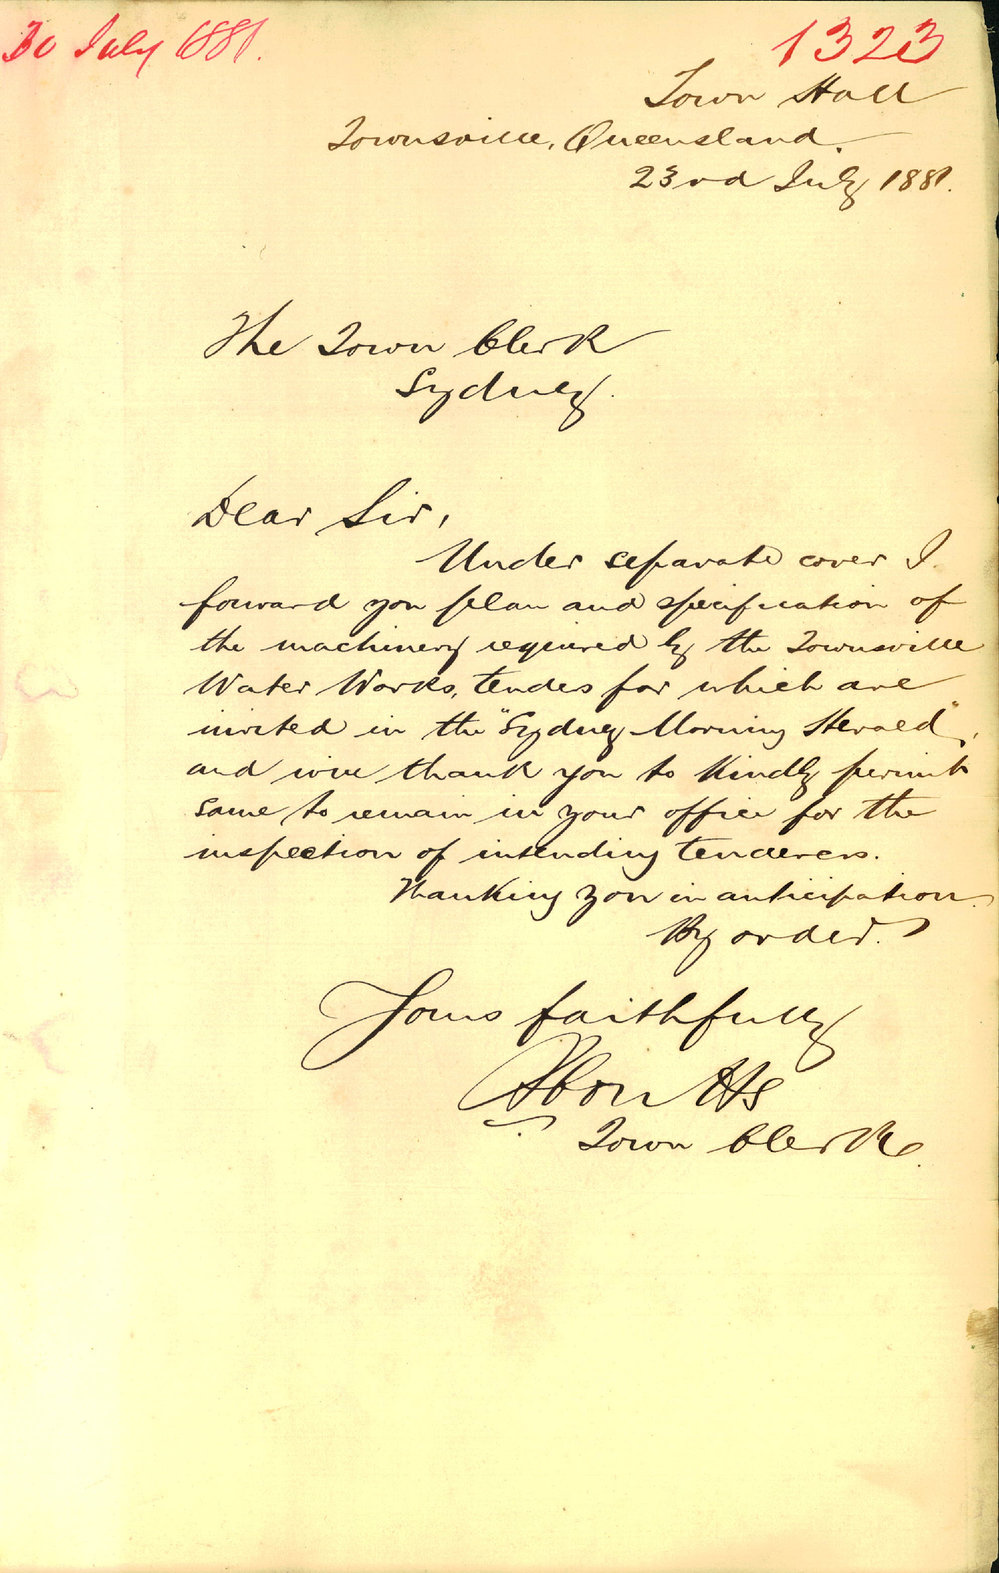 30 July 1881.
1323
Town Hall
Townsville, Queensland.
23rd July 1881.
The Town Clerk
Sydney.
Dear Sir,
Under separate cover I
forward you plan and specification of
the machinery required by the Townsville
Water Works, tendes for which are
invited in the "Sydney Morning Herald",
and will thank you to kindly permit
same to remain in your office for the
inspection of intending tenderers.
Thanking you in anticipation.
By order.
Yours faithfully
Town Clerk.